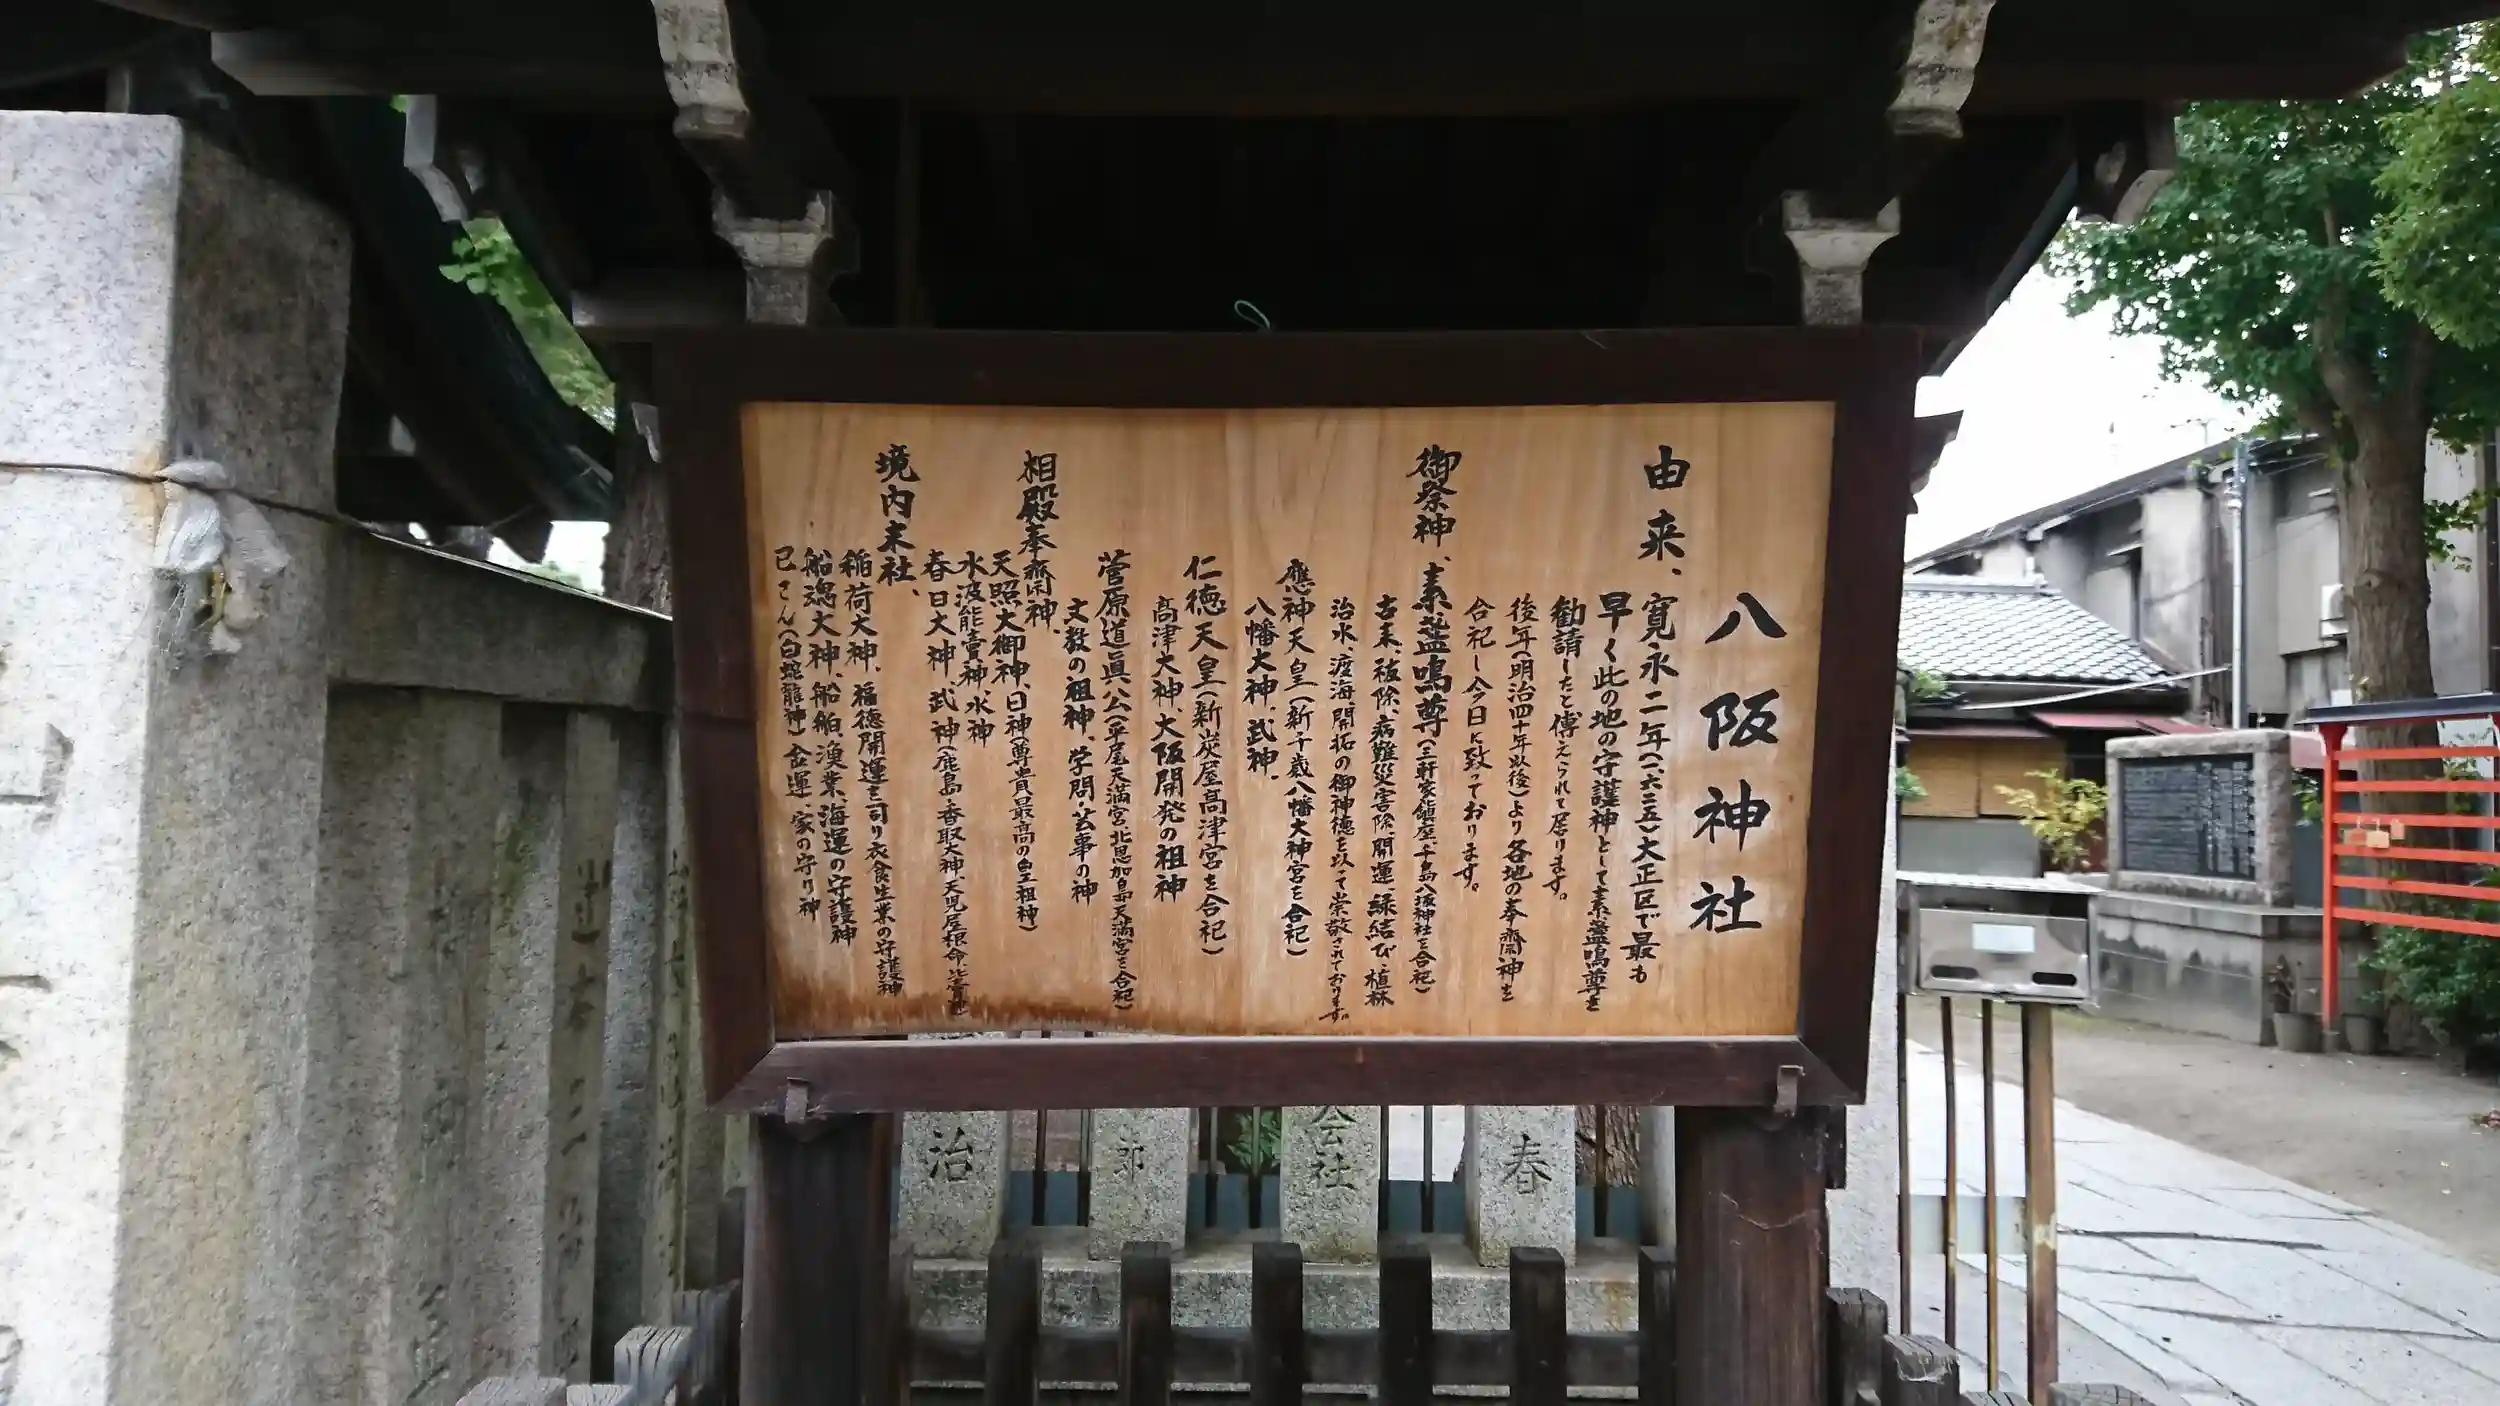 八阪神社
由来、寛永二年(一六二五)大正区で最も
早く此の地の守護神として素盞鳴尊を
勧請したと傳えられて居ります。
後年(明治四十年以後)より各地の奉齋神を
合祀し今日に致っております。
御祭神、素盞鳴尊(三軒家鎮座、千島八坂神社を合祀)
古来、祓除、病難災害除、開運、縁結び、植林
治水、渡海、開拓の御神徳を以って崇敬されております。
應神天皇(新千歳八幡大神宮を合祀)
八幡大神、武神、
仁徳天皇(新炭屋高津宮を合祀)
高津大神、大阪開発の祖神
菅原道眞公(平尾天満宮北恩加島天満宮を合祀)
文教の祖神、学問・芸事の神
相殿奉齋神、
天照大御神、日神(尊貴最高の皇祖神)
水波能賣神、水神
春日大神、武神(鹿島・香取大神、天児屋根命、比賣神)
境内末社、
稲荷大神、福徳開運を司り衣食生業の守護神
船魂大神、船舶、漁業、海運の守護神
巳さん(白蛇龍神)金運、家の守り神
治
郎
会社
春